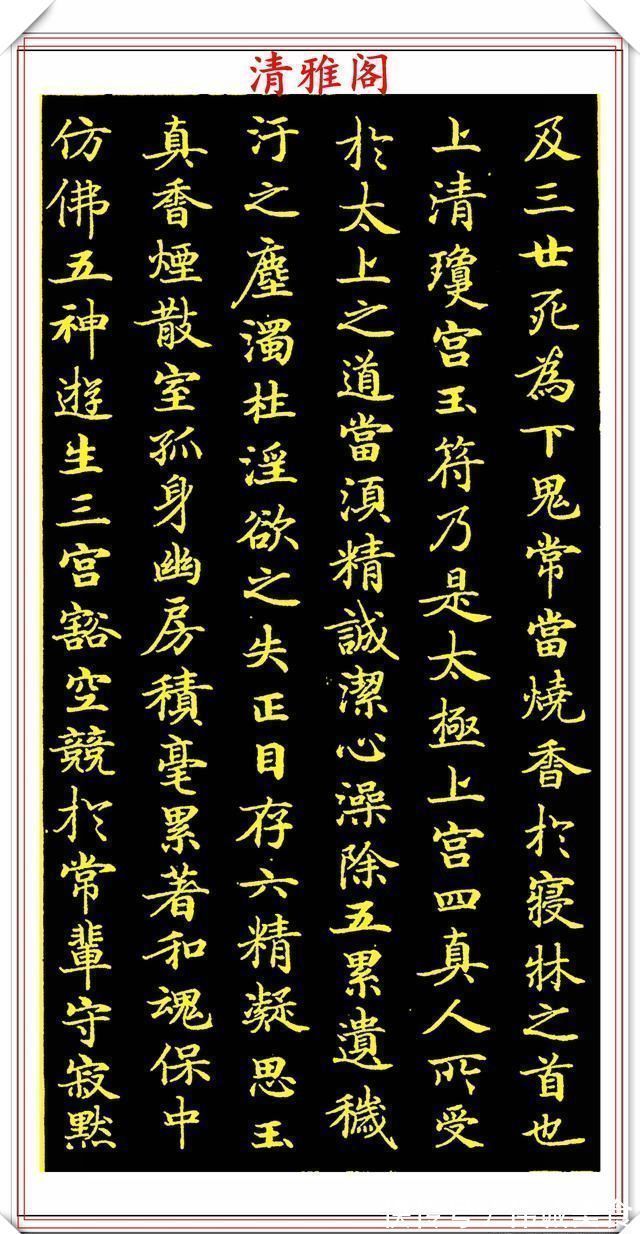 清雅阁
及三廿死為下鬼常當燒香於寢牀之首也
上清瓊宮玉符乃是太極上宮四真人所受
於太上之道當須精誠潔心澡除五累遺穢
汙之塵濁杜淫欲之失正目存六精凝思玉
真香煙散室孤身幽房積毫累著和魂保中
仿佛五神遊生三宮豁空競於常輩守寂默